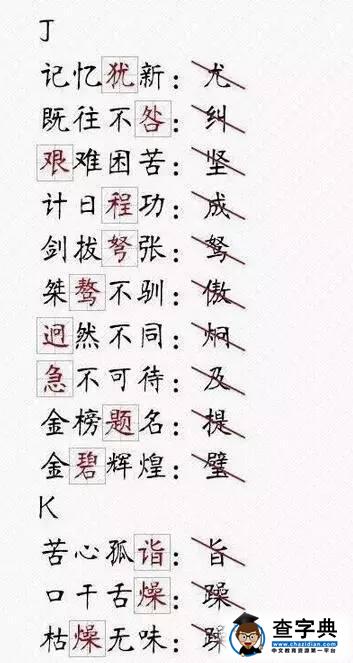 J
记忆犹新：尤
既往不咎：纠
艰难困苦：坚
计日程功：成
剑拔弩张：驽
桀骜不驯：傲
迥然不同：炯
急不可待：及
金榜题名：提
金碧辉煌：璧
K
苦心孤诣：旨
口干舌燥：躁
枯燥无味：躁
查字典
www.chazidian.com
中文教育资源第一平台